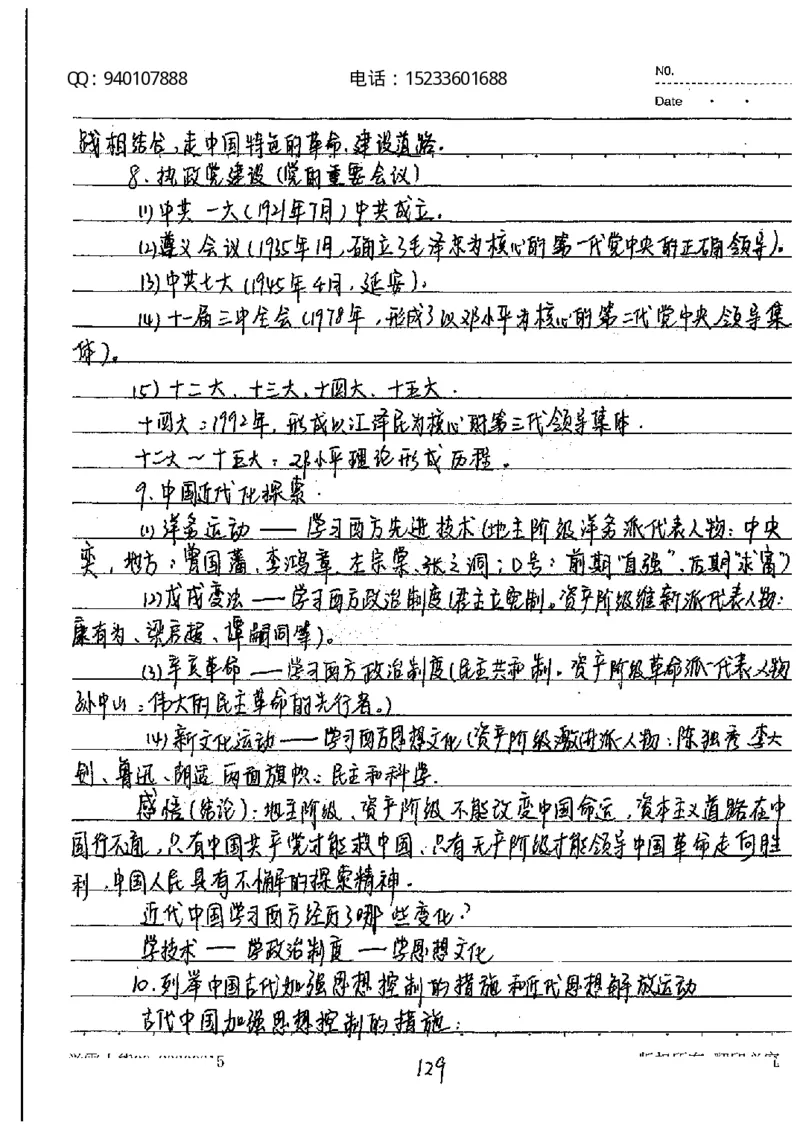 QQ：940107888 电话：15233601688 NO.
Date · ·
战相结合，走中国特色的革命、建设道路．
8、执政党建设（党的重要会议）
(1)中共一大（1921年7月）中共成立．
(2)遵义会议（1935年1月，确立了毛泽东为核心的第一代党中央的正确领导）。
(3)中共七大（1945年4月，延安）．
(4)十一届三中全会（1978年，形成了以邓小平为核心的第二代党中央领导集
体）。
(5)十二大、十三大、十四大、十五大．
十四大：1992年，形成以江泽民为核心的第三代领导集体．
十二大～十五大：邓小平理论形成历程。
9、中国近代化探索．
(1)洋务运动——学习西方先进技术（地主阶级洋务派代表人物：中央
奕 ，地方：曾国藩、李鸿章、左宗棠、张之洞；口号：前期“自强”、后期“求富”）
(2)戊戌变法——学习西方政治制度（君主立宪制。资产阶级维新派代表人物：
康有为、梁启超、谭嗣同等）。
(3)辛亥革命——学习西方政治制度（民主共和制．资产阶级革命派代表人物
孙中山：伟大的民主革命的先行者。）
(4)新文化运动——学习西方思想文化（资产阶级激进派人物：陈独秀、李大
钊、鲁迅、胡适 两面旗帜：民主和科学．
感悟（结论）：地主阶级、资产阶级不能改变中国命运，资本主义道路在中
国行不通，只有中国共产党才能救中国、只有无产阶级才能领导中国革命走向胜
利．中国人民具有不懈的探索精神．
近代中国学习西方经历了哪些变化？
学技术——学政治制度——学思想文化
10、列举中国古代加强思想控制的措施和近代思想解放运动
古代中国加强思想控制的措施：
129